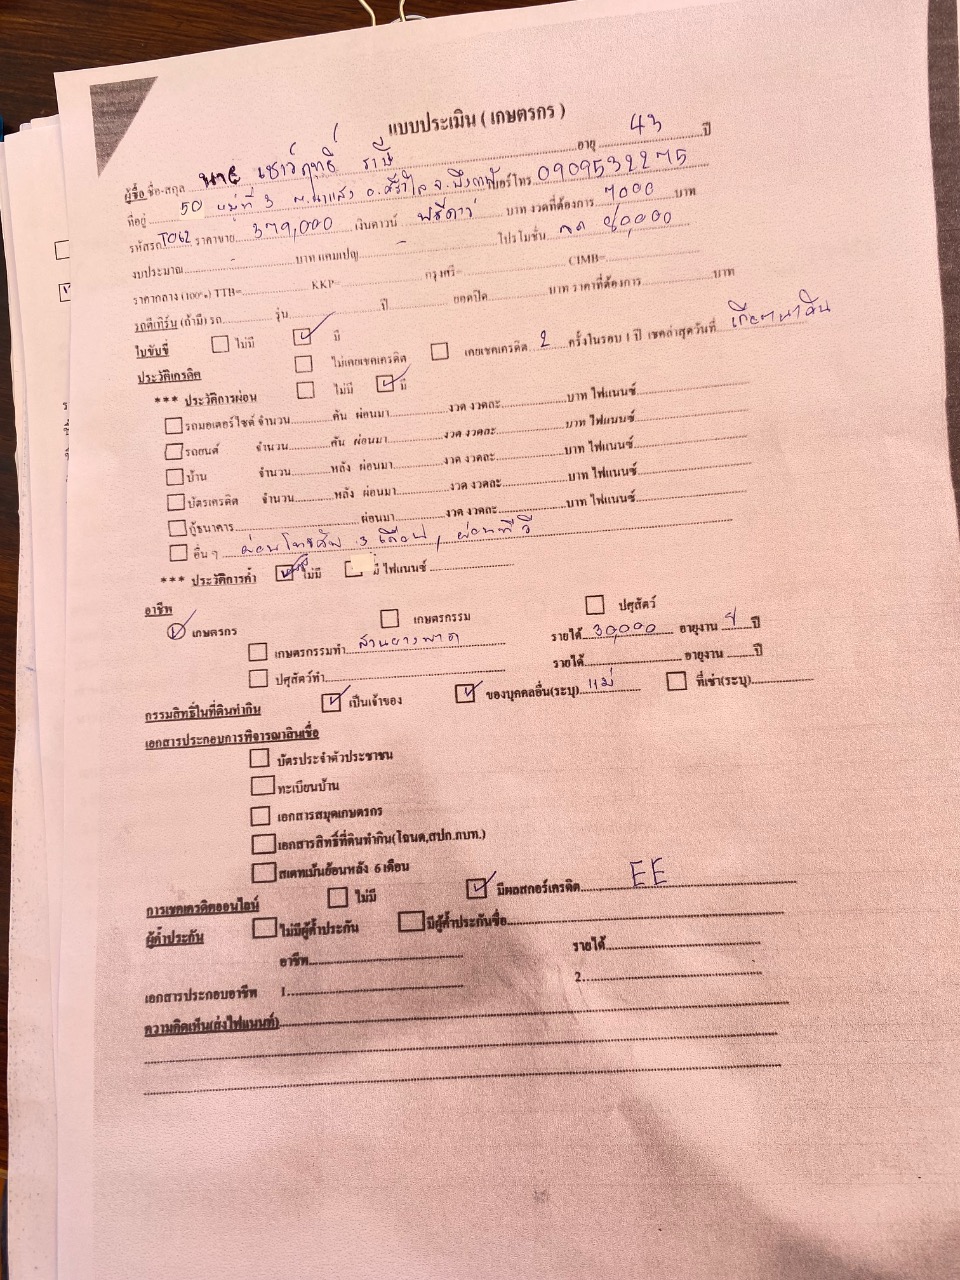 แบบประเมิน ( เกษตรกร )
ผู้ซื้อ ชื่อ-สกุล นาย เชาว์ฤทธิ์ ราษี อายุ 43 ปี
ที่อยู่ 50 หมู่ที่ 3 ต.นาแสง อ.ศรีวิไล จ.บึงกาฬ เบอร์โทร 0909532275
รหัสรถ T062 ราคาขาย 379,000 เงินดาวน์ ฟรีดาวน์ บาท งวดที่ต้องการ 7000 บาท
งบประมาณ - บาท แคมเปญ - โปรโมชั่น
ราคากลาง (100%) TTB= KKP= กรุงศรี= CIMB=
รถตีเทิร์น (ถ้ามี) รถ รุ่น ปี ยอดปิด บาท ราคาที่ต้องการ บาท
ใบขับขี่ ไม่มี มี
ประวัติเครดิต ไม่เคยเชคเครดิต เคยเชคเครดิต 2 ครั้งในรอบ 1 ปี เชคล่าสุดวันที่
*** ประวัติการผ่อน ไม่มี มี
รถมอเตอร์ไซต์ จำนวน คัน ผ่อนมา งวด งวดละ บาท ไฟแนนซ์
รถยนต์ จำนวน คัน ผ่อนมา งวด งวดละ บาท ไฟแนนซ์
บ้าน จำนวน หลัง ผ่อนมา งวด งวดละ บาท ไฟแนนซ์
บัตรเครดิต จำนวน หลัง ผ่อนมา งวด งวดละ บาท ไฟแนนซ์
กู้ธนาคาร ผ่อนมา งวด งวดละ บาท ไฟแนนซ์
อื่น ๆ ผ่อนโทรศัพ 3 เดือน, ผ่อนทีวี
*** ประวัติการค้ำ ไม่มี มี ไฟแนนซ์
อาชีพ
เกษตรกร เกษตรกรรม ปศุสัตว์
เกษตรกรรมทำ สวนยางพารา รายได้ 30,000 อายุงาน ปี
ปศุสัตว์ทำ รายได้ อายุงาน ปี
กรรมสิทธิ์ในที่ดินทำกิน เป็นเจ้าของ ของบุคคลอื่น(ระบุ) แม่ ที่เช่า(ระบุ)
เอกสารประกอบการพิจารณาสินเชื่อ
บัตรประจำตัวประชาชน
ทะเบียนบ้าน
เอกสารสมุดเกษตรกร
เอกสารสิทธิ์ที่ดินทำกิน(โฉนด,สปก.ภบท.)
สเตทเม้นย้อนหลัง 6 เดือน
การเชคเครดิตออนไลน์ ไม่มี มีผลสกอร์เครดิต EE
ผู้ค้ำประกัน ไม่มีผู้ค้ำประกัน มีผู้ค้ำประกันชื่อ
อาชีพ รายได้
เอกสารประกอบอาชีพ 1. 2.
ความคิดเห็น(ส่งไฟแนนท์)